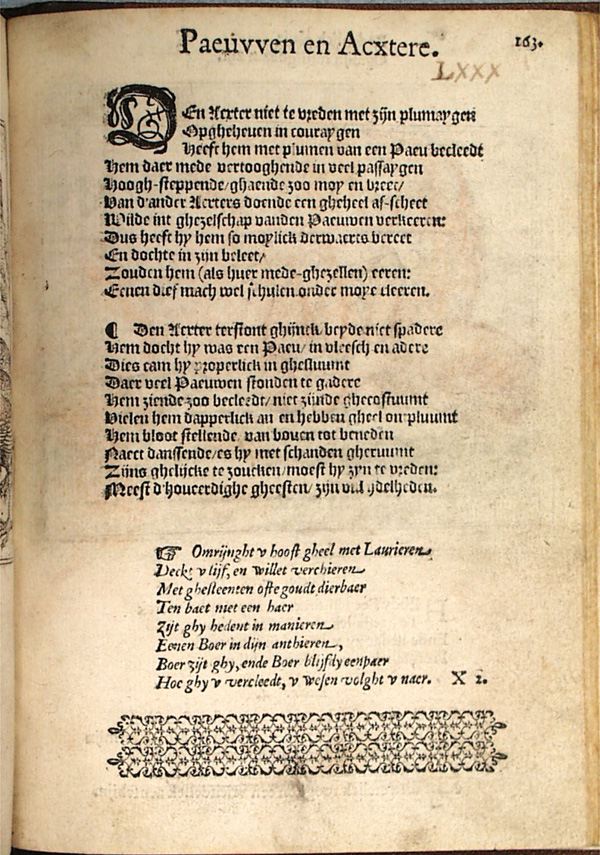 Paeuvven en Acxtere. 163.
LXXX
DEn Aexter niet te vreden met zijn plumaygen
Opgheheven in couraygen
Heeft hem met plumen van een Paeu becleedt
Hem daer mede vertooghende in veel passaygen
Hoogh-steppende/ ghaende zoo moy en breet/
Van d'ander Aexters doende een gheheel af-scheet
Wilde int ghezelschap vanden Paeuwen verkeeren:
Dus heeft hy hem so moylick derwaerts bereet
En dochte in zijn beleet/
Zouden hem (als huer mede-ghezellen) eeren:
Eenen dief mach wel schulen onder moye cleeren.
¶ Den Aexter terstont ghijnck/ beyde niet spadere
Hem docht hy was een Paeu/ in vleesch en adere
Dies cam hy properlick in ghestuumt
Daer veel Paeuwen stonden te gadere
Hem ziende zoo becleedt/ niet zijnde ghecostuumt
Vielen hem dapperlick an en hebben gheel ontpluumt
Hem bloot stellende van boven tot beneden
Naect danssende/ es hy met schanden gheruumt
Zijns ghelijcke te zoucken/ moest hy zyn te vreden:
Meest d'hooveerdighe gheesten/ zijn vul ydelheden.
☞ Omrijnght v hooft gheel met Laurieren
Deckt v lijf, en willet verchieren
Met ghesteenten ofte goudt dierbaer
Ten baet niet een haer
Zijt ghy bekent in manieren
Eenen Boer in dijn anthieren,
Boer zijt ghy, ende Boer blijfdy eenpaer
Hoe ghy v vercleedt, v wesen volght v naer. X 2.